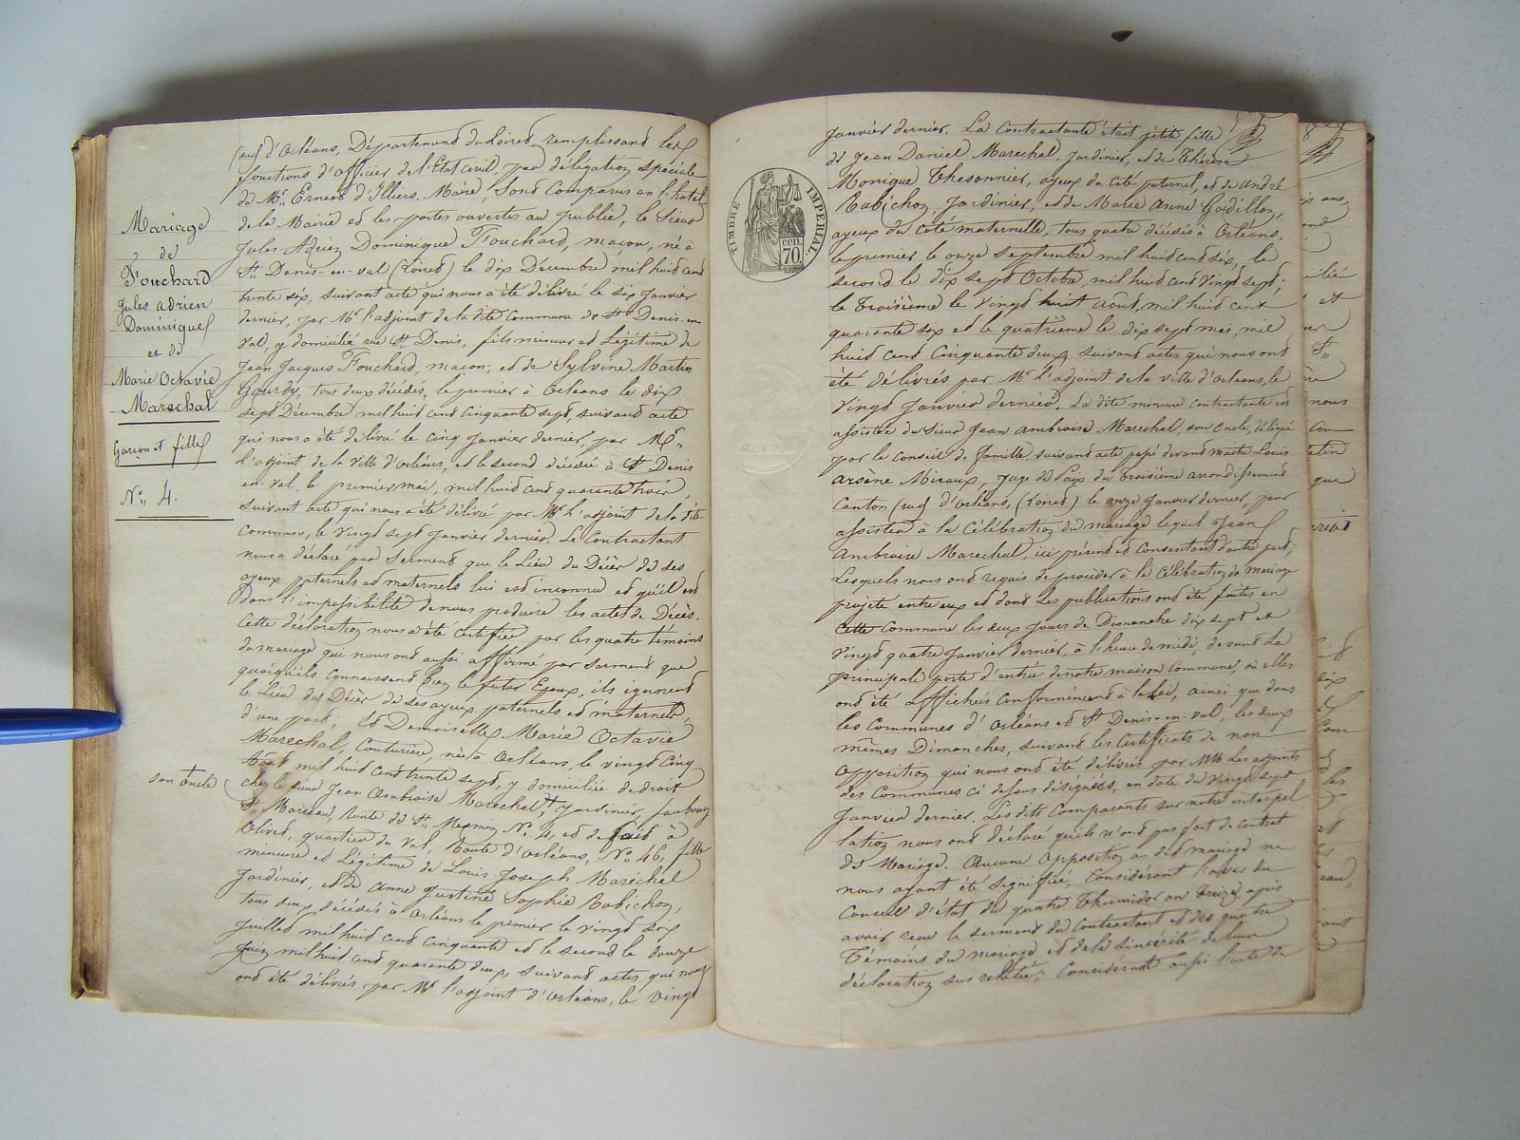 Mariage
de
Fouchard
Jules adrien
Dominique
et de
Marie Octavie
Maréschal
Garçon et fille
N° 4.
son oncle
(sud) d'Orléans, Département du Loiret, remplissant les
fonctions d'officier de l'Etat civil, par délégation spéciale
de Mr. Ernest d'Illiers, Maire, Sont Comparus en l'hotel
de la Mairie et les portes ouvertes au publie, le Sieur
Jules Adrien Dominique Fouchard, maçon, né à
St Denis-en-val (Loiret) le dix Décembre mil huit cent
trente six, suivant acte qui nous a été délivré le six Janvier
dernier, par Mr l'adjoint de la dite Commune de St Denis-en-
Val, y domicilié rue St Denis, fils mineur et Légitime de
Jean Jacques Fouchard, maçon, et de Sylvine Martin
tous deux décédés, le premier à Orléans le dix
sept Décembre mil huit cent cinquante sept, suivant acte
qui nous a été délivré le cinq Janvier dernier, par Mr
l'adjoint de la Ville d'Orléans, et le second décédé à St Denis
en-val, le premier mai, mil huit cent quarante trois,
suivant acte qui nous a été délivré par Mr L'adjoint de la dite
Commune, le Vingt sept Janvier dernier. Le Contractant
nous a déclaré par Serment que le Lieu du Décès de ses
ayeux paternels et maternels lui est inconnu et qu'il est
Dans l'impossibilité de nous produire les actes de Décès.
Cette déclaration nous a été certifiée par les quatre témoins
du mariage qui nous ont aussi affirmé par serment que
quoiqu'ils connaissent bien le futur Epoux, ils ignorent
le Lieu du Décès de ses ayeux paternels et maternels,
d'une part; Et Demoiselle Marie Octavie
Marechal, Couturière, née à Orléans, le vingt cinq
Aout mil huit cent trente sept, y domiciliée de droit
chez le sieur Jean Ambroise Marechal, Jardinier, faubourg
St Marceau, Route de St Mesmin N° et de fait à
Olivet, quartier du Val, Route d'Orléans, N° 46, fille
mineure et Légitime de Louis Joseph Maréchal
Jardinier, et de Anne Justine Sophie Rabichon,
tous deux décédés à Orléans le premier le vingt six
Juillet mil huit cent cinquante et le second le douze
Juin mil huit cent quarante deux suivant actes qui nous
ont été délivrés par Mr l'adjoint d'Orléans, le vingt
TIMBRE IMPÉRIAL
CEN.
70.
Janvier dernier. La Contractante était petite fille
de Jean Daniel Marechal, Jardinier, et de Thérèse
Monique Thesonnier, ayeux du côté paternel, et de André
Rabichon, Jardinier, et de Marie Anne Godillon,
ayeux du coté maternelle, tous quatre décédés à Orléans,
le premier le onze Septembre mil huit cent six, le
second le dix sept Octobre, mil huit cent vingt sept;
le troisième le vingt huit aout, mil huit cent
quarante six et le quatrième le dix sept mai, mil
huit cent Cinquante deux, suivant actes qui nous ont
été délivrés par Mr l'adjoint de la ville d'Orléans, le
Vingt Janvier dernier. La dite mineure contractante est
assistée du Sieur Jean Ambroise Marechal, son Oncle, délégué
par le Conseil de famille suivant acte passé devant maitre Louis
Arsène Miraux, Juge de Paix du troisième arrondissement
Canton (sud) d'Orléans, (Loiret) le onze Janvier dernier, pour
assister à la Célébration du mariage lequel Jean
Ambroise Marechal, ici présent et Consentant d'autre part,
Lesquels nous ont requis de procéder à la Célébration du mariage
projeté entre eux et dont les publications ont été faites en
Cette Commune les deux jours de Dimanche dix sept et
Vingt quatre Janvier dernier, à l'heure de midi, devant la
principale porte d'entrée de notre maison Commune, où elles
ont été affichées conformément à la loi, ainsi que dans
les Communes d'Orléans et St Denis-en-val, les deux
mêmes Dimanches, suivant les Certificats de non
opposition qui nous ont été délivrés par MM. les adjoints
des Communes ci-dessus désignées, en date du Vingt sept
Janvier dernier. Les dits Comparants sur notre interpel
lation nous ont déclaré qu'ils n'ont pas fait de contrat
de Mariage. Aucune opposition au dit mariage ne
nous ayant été signifiée, Considérant l'avis du
Conseil d'état du quatre Thermidor an treize, après
avoir reçu le serment du Contractant et des quatre
Témoins du mariage et de la sincérité de leur
déclaration sus relatée; Considérant aussi l'acte de